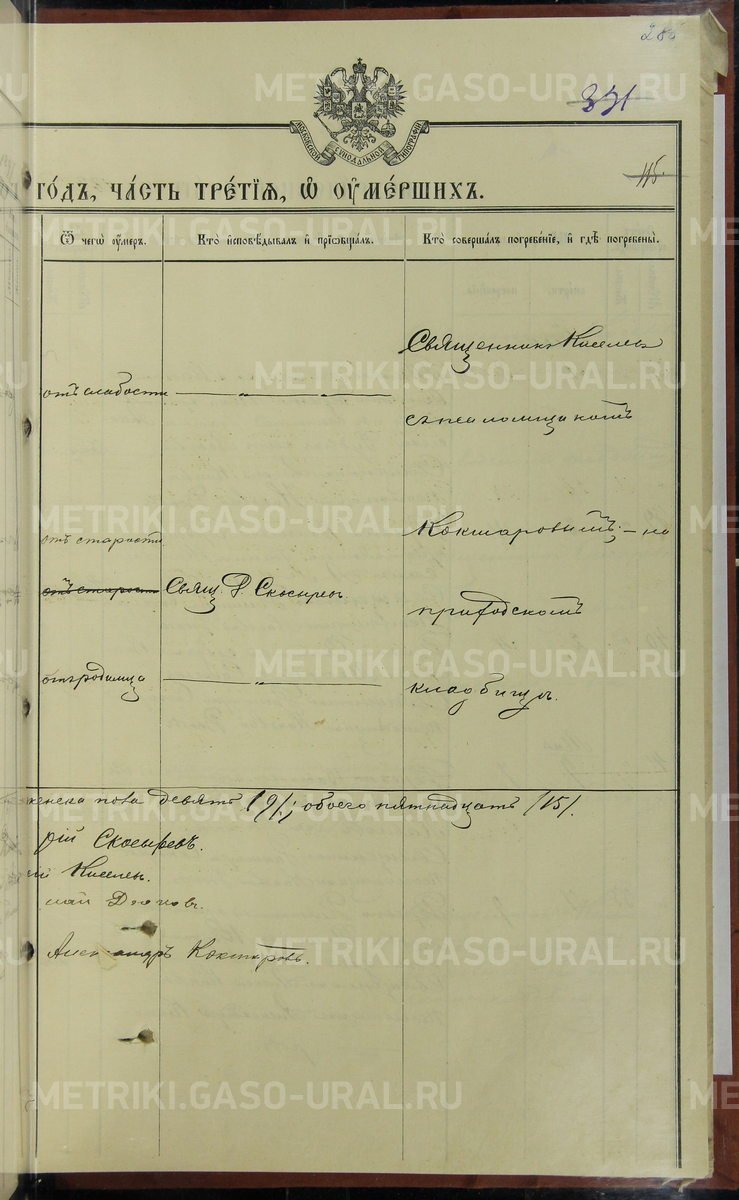 285
331
МОСКОВСКОЙ СѴНОДАЛЬНОЙ ТИПОГРАФІИ
115.
го́дъ, ча́сть тре́тїѧ, ѡ҆ ᲂу҆ме́ршихъ.
Ѿ чегѡ̀ ᲂу҆́меръ.
Кто̀ и҆сповѣ́дывалъ и҆ прїѡбща́лъ.
Кто̀ соверша́лъ погребе́нїе, и҆ гдѣ̀ погребены̀.
Священникъ Киселевъ
отъ слабости
съ псаломщикомъ
отъ старости
Кокшаровымъ; – на
отъ старости
Свящ. Скосыревъ.
приходскомъ
отъ родимца
кладбищѣ.
женска пола девять /9/; обоего пятнадцать /15/.
рій Скосыревъ.
ій Киселевъ.
лай
Александръ Кокшаровъ.
METRIKI.GASO-URAL.RU